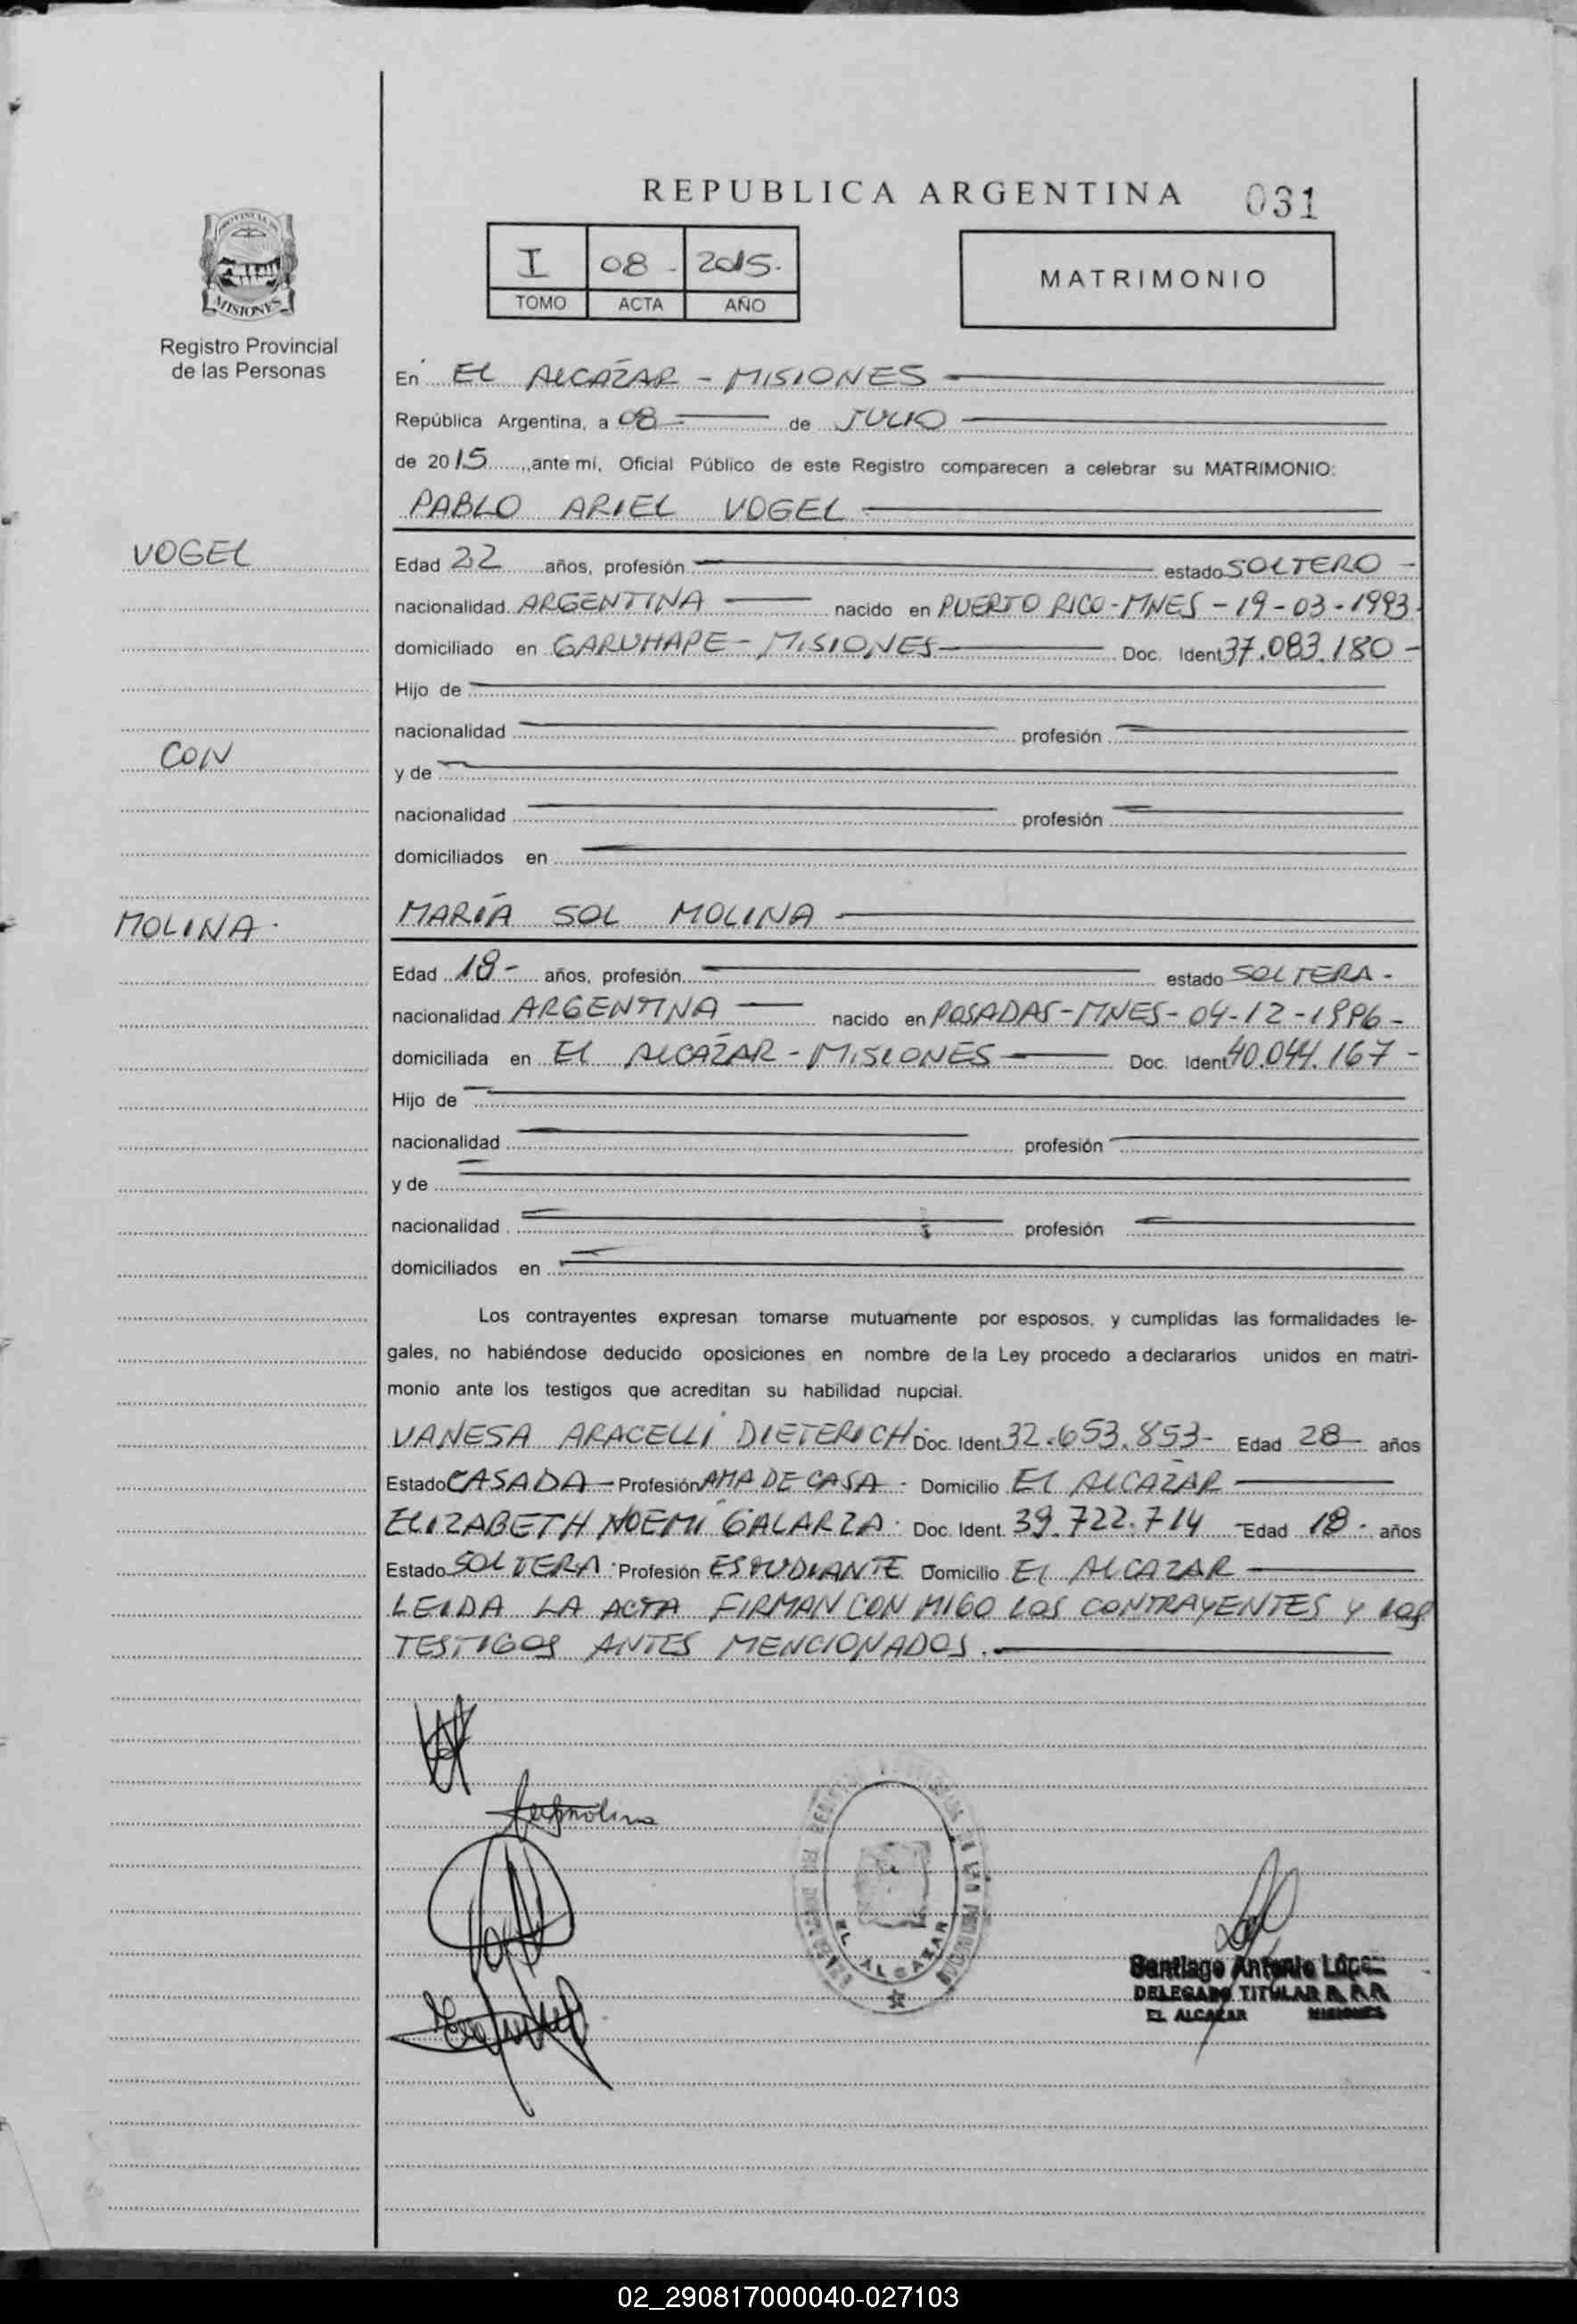 REPUBLICA ARGENTINA 031
PROVINCIA DE
MISIONES
Registro Provincial
de las Personas
I 08 - 2015.
TOMO ACTA AÑO
MATRIMONIO
En EL ALCÁZAR - MISIONES
República Argentina, a 08 de JULIO
de 2015 ante mí, Oficial Público de este Registro comparecen a celebrar su MATRIMONIO:
PABLO ARIEL VOGEL
VOGEL
Edad 22 años, profesión estado SOLTERO -
nacionalidad ARGENTINA nacido en PUERTO RICO - MNES - 19-03-1993.
domiciliado en GARUHAPE - MISIONES Doc. Ident 37.083.180 -
Hijo de
nacionalidad profesión
CON
y de
nacionalidad profesión
domiciliados en
MOLINA.
MARÍA SOL MOLINA
Edad 18 - años, profesión estado SOLTERA -
nacionalidad ARGENTINA nacido en POSADAS - MNES - 04-12-1996 -
domiciliada en El ALCÁZAR - MISIONES Doc. Ident 40.044.167 -
Hijo de
nacionalidad profesión
y de
nacionalidad profesión
domiciliados en
Los contrayentes expresan tomarse mutuamente por esposos, y cumplidas las formalidades le-
gales, no habiéndose deducido oposiciones en nombre de la Ley procedo a declararlos unidos en matri-
monio ante los testigos que acreditan su habilidad nupcial.
VANESA ARACELLI DIETERICH Doc. Ident 32.653.853 - Edad 28 años
Estado CASADA - Profesión AMA DE CASA - Domicilio El ALCÁZAR
ELIZABETH NOEMÍ GALARZA. Doc. Ident. 39.722.714 - Edad 18 - años
Estado SOLTERA. Profesión ESTUDIANTE Domicilio El ALCAZAR
LEIDA LA ACTA FIRMAN CON MIGO LOS CONTRAYENTES Y LOS
TESTIGOS ANTES MENCIONADOS.
EL ALCAZAR
Santiago Antonio López
DELEGADO TITULAR
EL ALCAZAR MISIONES
02_290817000040-027103